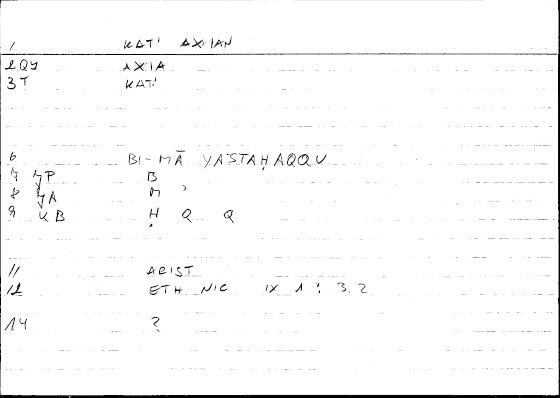 1 KAT' AXIAN
2QY AXIA
3T KAT'
6 BI-MĀ YASTAḤAQQU
7 YP B
8 YA M '
9 KB Ḥ Q Q
11 ARIST
12 ETH NIC IX 1 : 3.2
14 ?